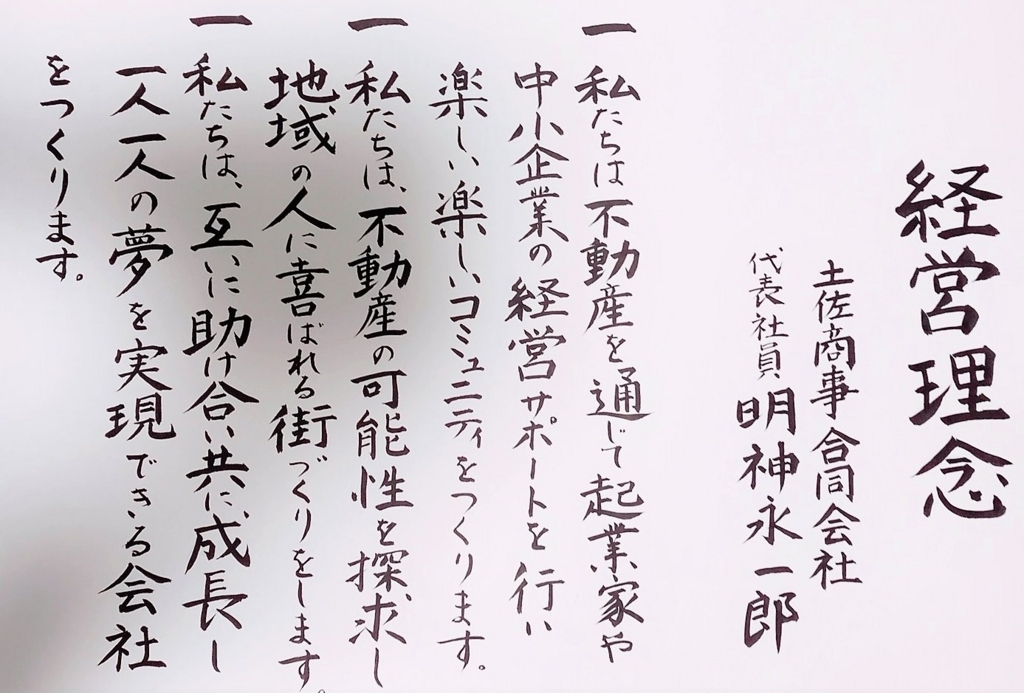 経営理念
土佐商事合同会社
代表社員 明神永一郎
一 私たちは不動産を通じて起業家や
中小企業の経営サポートを行い
楽しい楽しいコミュニティをつくります。
一 私たちは、不動産の可能性を探求し
地域の人に喜ばれる街づくりをします。
一 私たちは、互いに助け合い共に成長し
一人一人の夢を実現できる会社
をつくります。